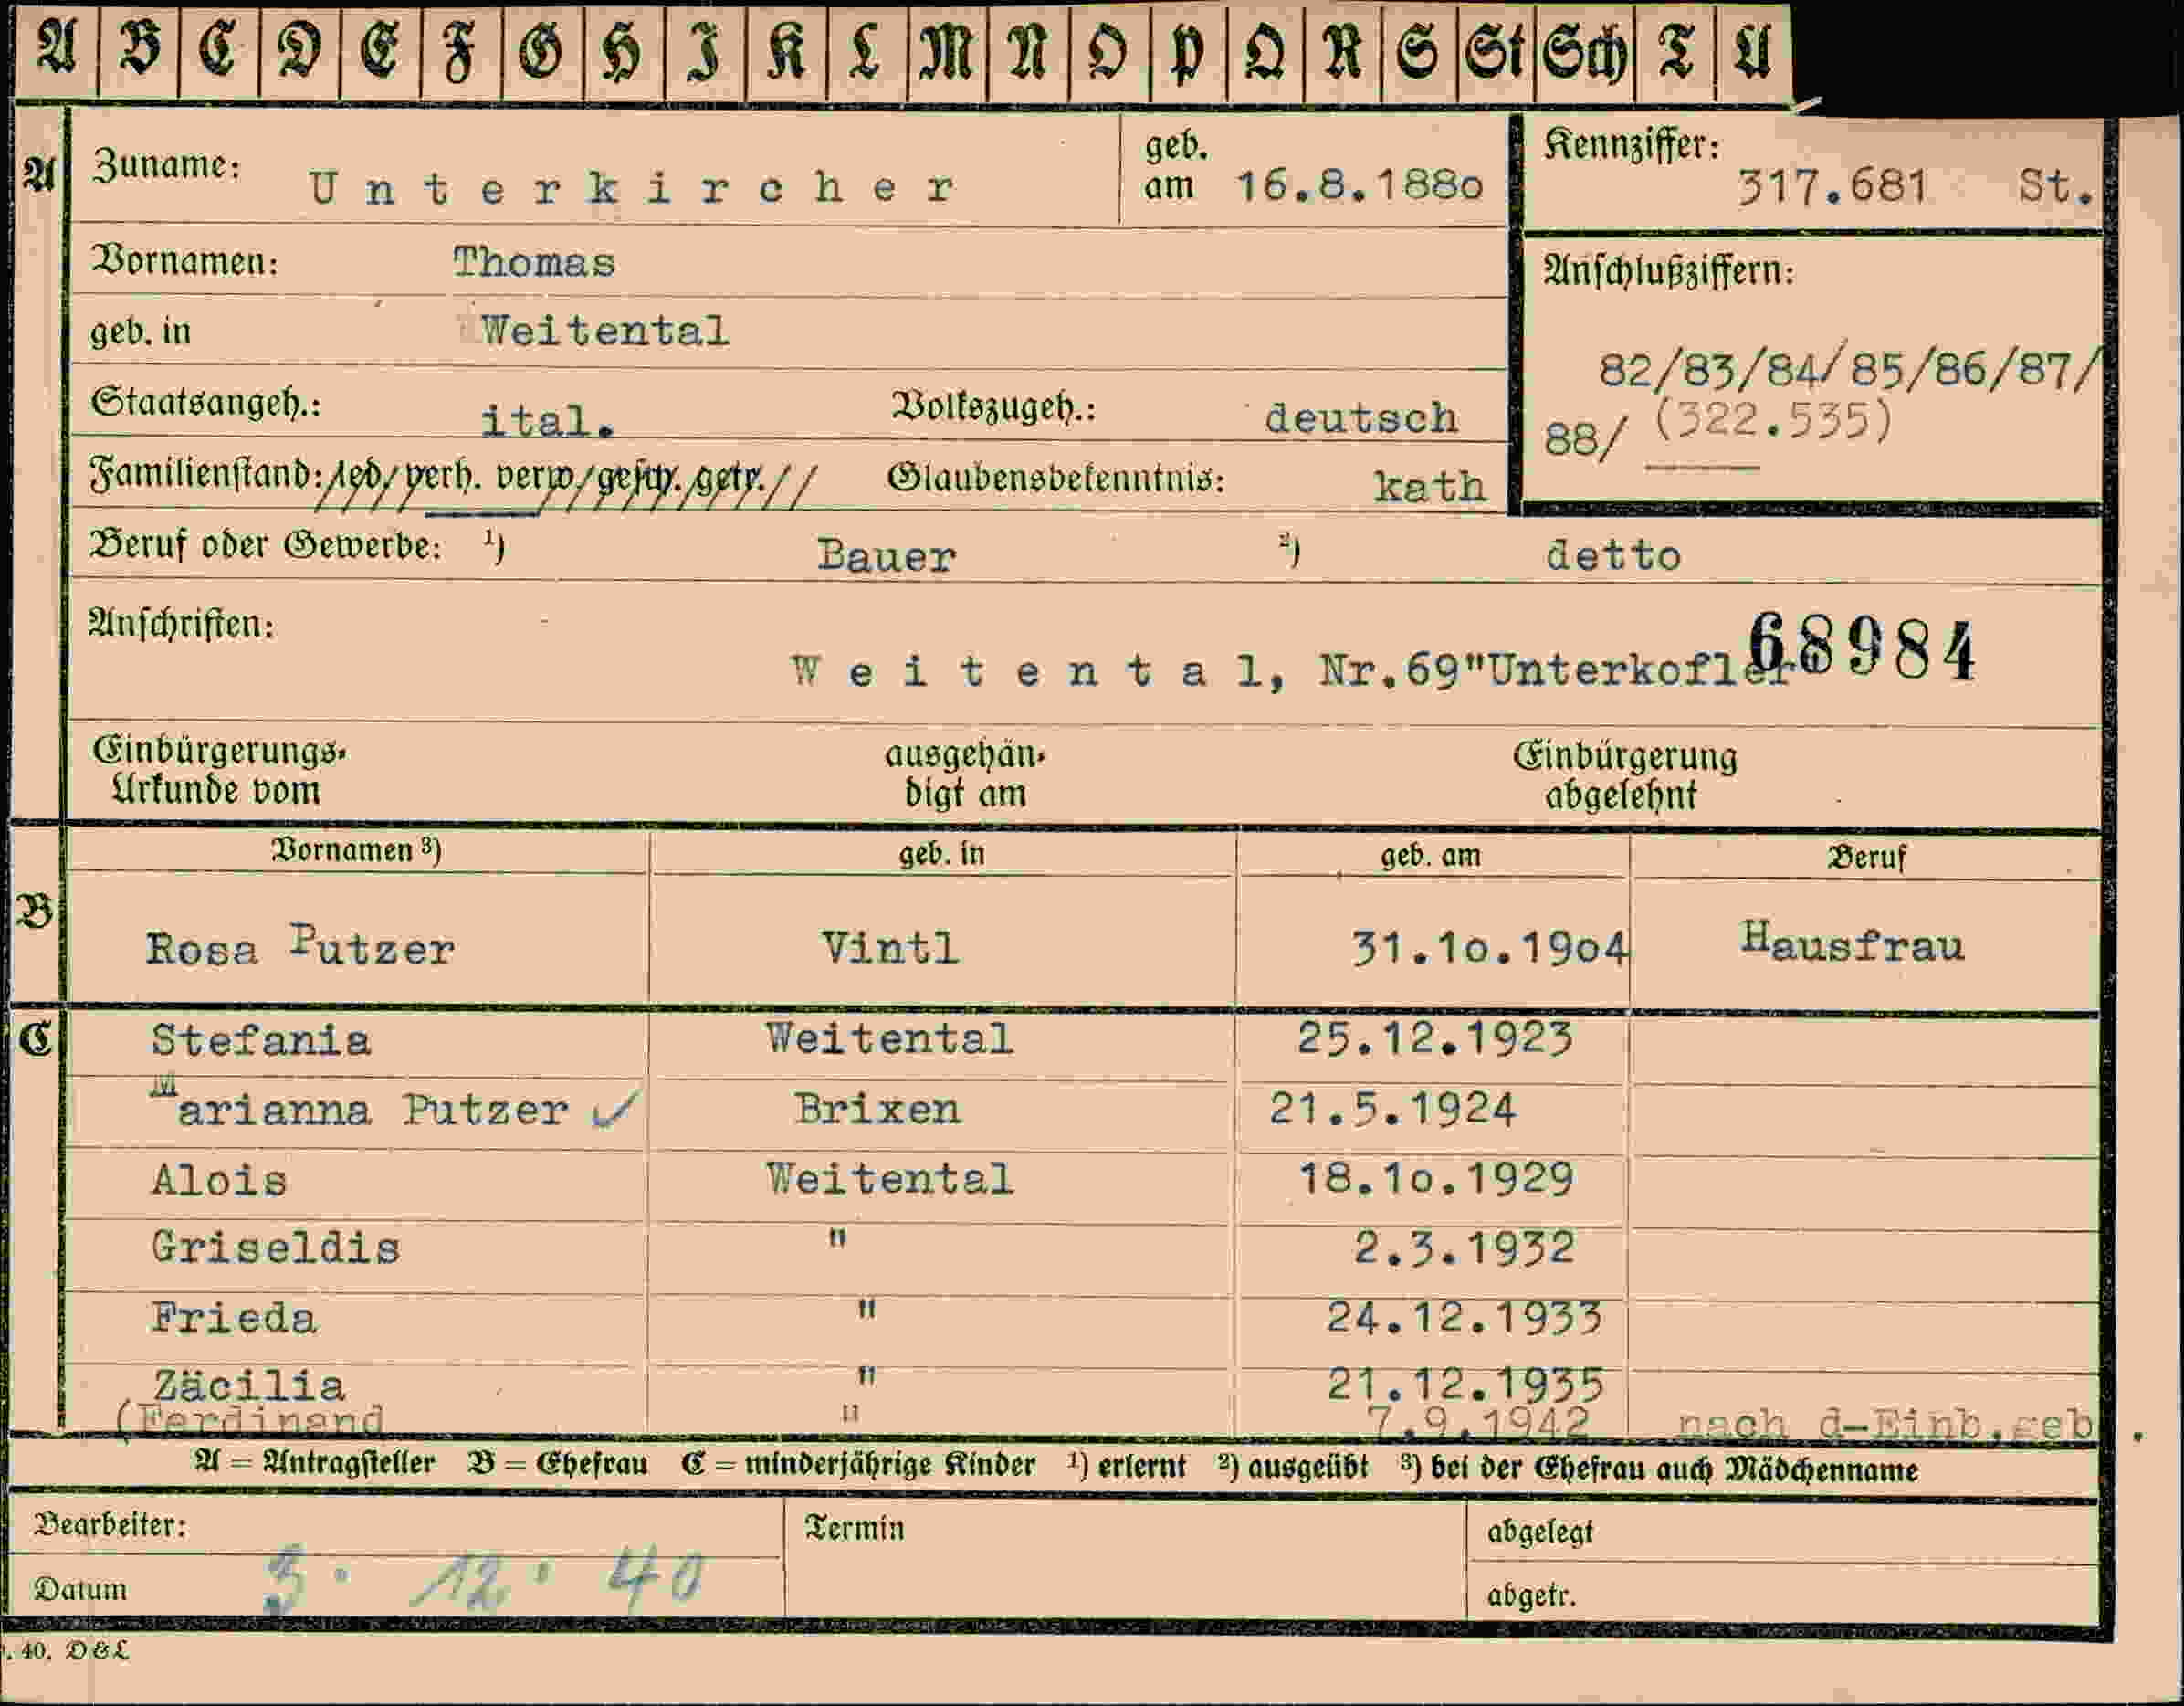 A B C D E F G H I K L M N O P Q R S St Sch T U
A Zuname: Unterkircher geb. am 16.8.188o Kennziffer: 317.681 St.
Vornamen: Thomas Anschlußziffern:
geb. in Weitental
82/83/84/85/86/87/
Staatsangeh.: ital. Volkszugeh.: deutsch 88/ (322.535)
Familienstand: led/verh. verw/gesch. getr. Glaubensbekenntnis: kath
Beruf oder Gewerbe: 1) Bauer 2) detto
Anschriften:
Weitental, Nr.69"Unterkofler 68984
Einbürgerungs- ausgehän- Einbürgerung
Urkunde vom digt am abgelehnt
Vornamen 3) geb. in geb. am Beruf
B Rosa Putzer Vintl 31.1o.19o4 Hausfrau
C Stefania Weitental 25.12.1923
Marianna Putzer ✓ Brixen 21.5.1924
Alois Weitental 18.1o.1929
Griseldis " 2.3.1932
Frieda " 24.12.1933
Zäcilia " 21.12.1935
(Ferdinand " 7.9.1942 nach d-Einb.geb.
A = Antragsteller B = Ehefrau C = minderjährige Kinder 1) erlernt 2) ausgeübt 3) bei der Ehefrau auch Mädchenname
Bearbeiter: Termin abgelegt
Datum 3. 12. 40 abgetr.
. 40. D&L